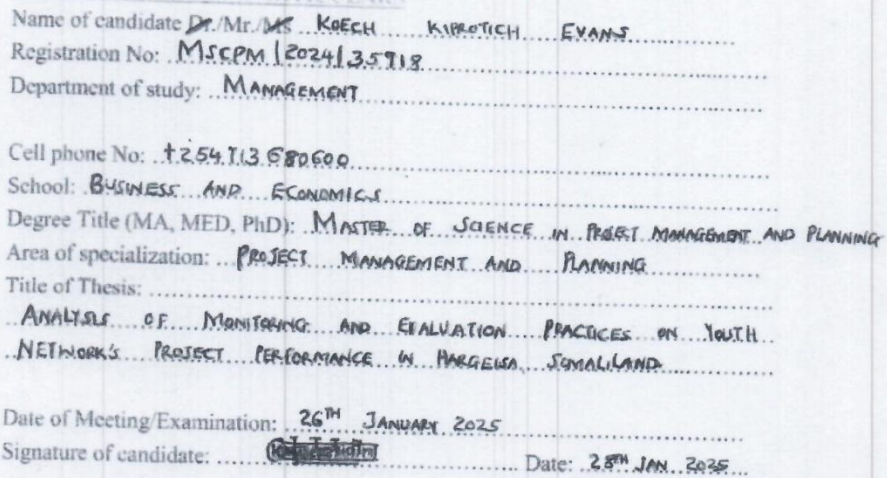 Name of candidate Dr./Mr./Ms KOECH KIPROTICH EVANS
Registration No: MSCPM/2024/35918
Department of study: MANAGEMENT
Cell phone No: +254 713 680600
School: BUSINESS AND ECONOMICS
Degree Title (MA, MED, PhD): MASTER OF SCIENCE IN PROJECT MANAGEMENT AND PLANNING
Area of specialization: PROJECT MANAGEMENT AND PLANNING
Title of Thesis:
ANALYSIS OF MONITORING AND EVALUATION PRACTICES ON YOUTH
NETWORK'S PROJECT PERFORMANCE IN HARGEISA, SOMALILAND
Date of Meeting/Examination: 26TH JANUARY 2025
Signature of candidate: Date: 28TH JAN 2025